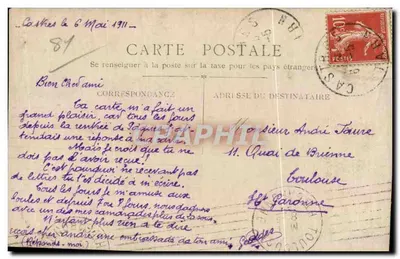 Castres le 6 Mai 1911
81
CARTE POSTALE
Se renseigner à la poste sur la taxe pour les pays étrangers
CORRESPONDANCE
ADRESSE DU DESTINATAIRE
Bien Cher ami
Ta carte m'a fait un
grand plaisir, car tous les jours
depuis la rentrée de
tendais une réponse à ma
Mais je crois que tu ne
dois pas l'avoir reçue!!
C'est pourquoi ne recevant pas
de lettres tu t'es décidé à m'écrire.
Tous les jours je m'amuse aux
boules et depuis 7 ou 8 jours, nous gagnons
avec un des mes camarades plus de
N'ayant plus rien a te dire
mon cher andré une embrassade de ton ami
(Réponds-moi)
Monsieur André Faure
11. Quai de Brienne
Toulouse
Hte Garonne
10
CASTRES
TARN
CPAPHIL